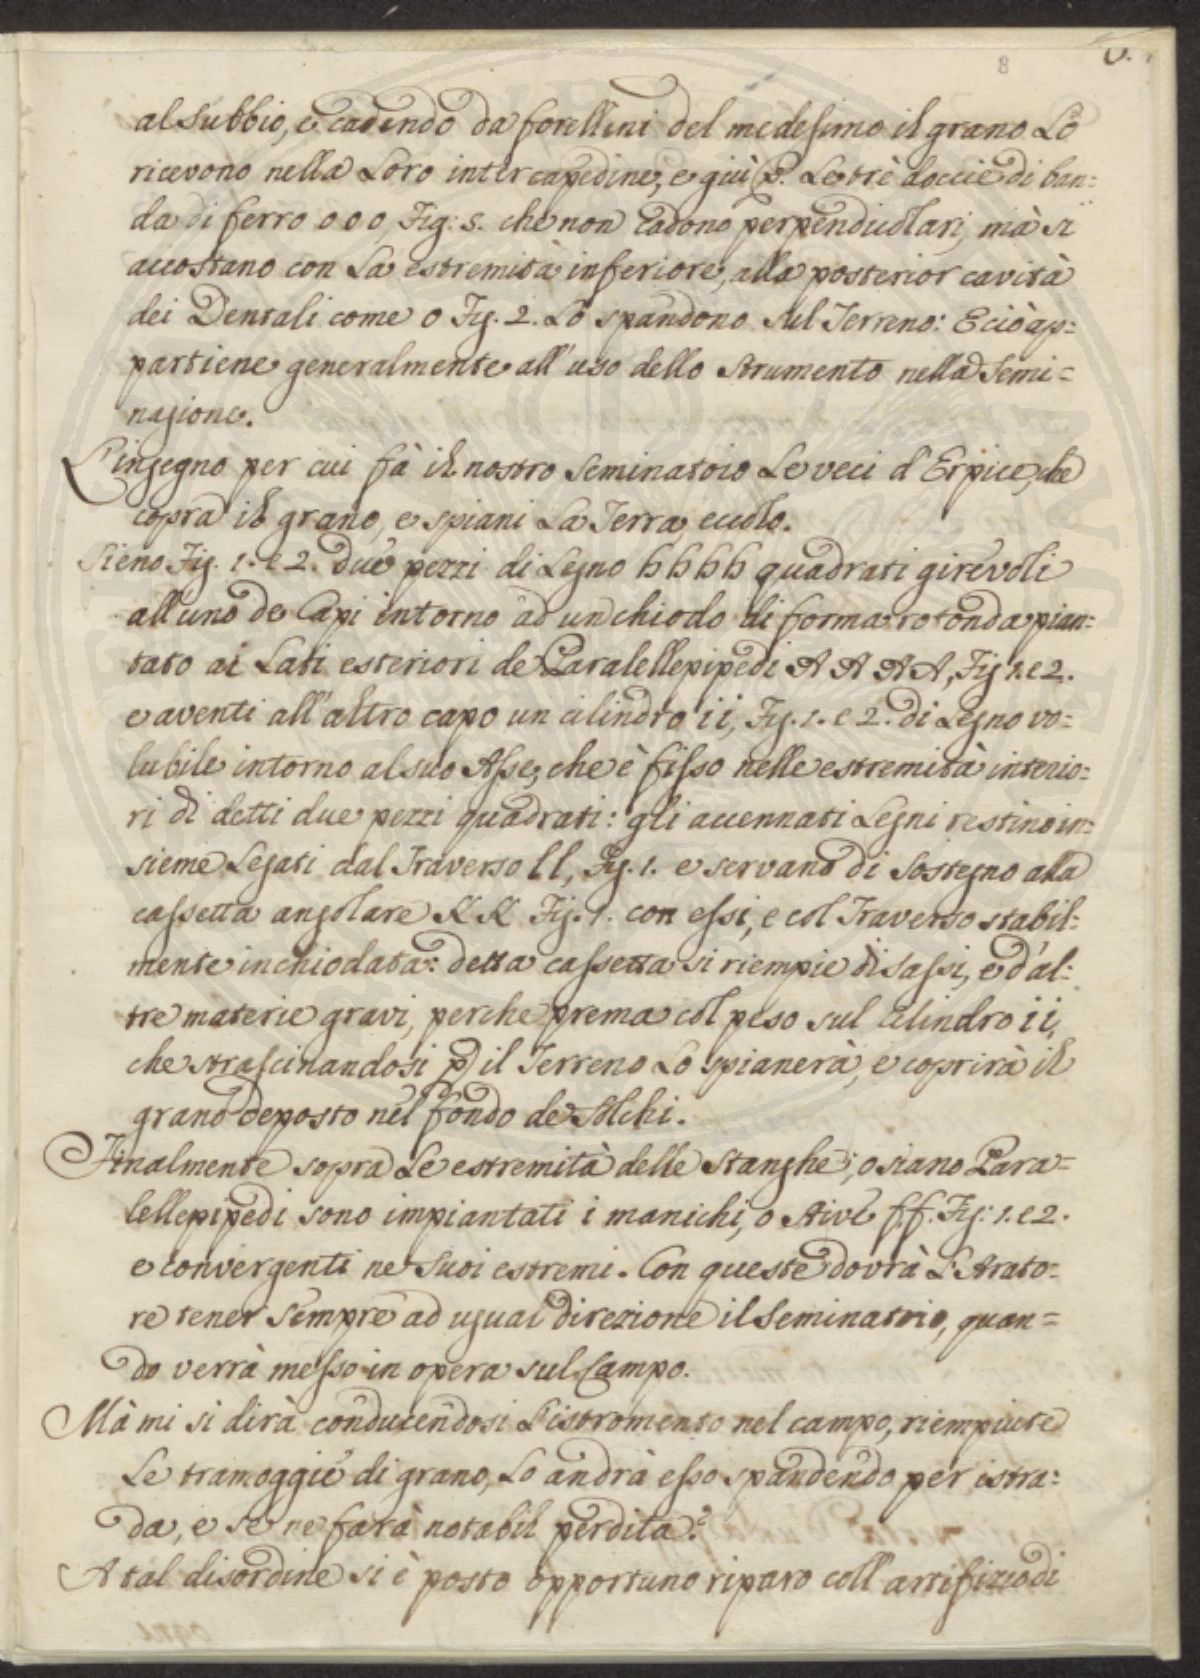 8
al Subbio, e cadendo da forellini del medesimo il grano Lo
ricevono nella Loro intercapedine, e giù p. Le trè doccie di ban:
da di ferro o o o, Fig: 5. che non cadono perpendicolari, mà si
accostano con La estremità inferiore, alla posterior cavità
dei Dentali come o Fig. 2. Lo spandono sul Terreno: E ciò ap:
partiene generalmente all'uso dello strumento nella Semi=
nagione.
L'ingegno per cui fà il nostro Seminatoio Le veci d'Erpice, che
copra il grano, e spiani La Terra, eccolo.
Sieno Fig. 1. e 2. due pezzi di Legno h h h h quadrati girevoli
all'uno de Capi intorno ad un chiodo di forma rotonda pian:
tato ai Lati esteriori de Paralellepipedi A A A A, Fig 1. e 2.
e aventi all'altro capo un cilindro i i, Fig. 1. e 2. di Legno vo:
lubile intorno al suo Asse, che è fisso nelle estremità interio:
ri di detti due pezzi quadrati: gli accennati Legni restino in:
sieme Legati dal Traverso l l, Fig. 1. e servano di Sostegno alla
cassetta angolare K K Fig. 1. con essi, e col Traverso stabil:
mente inchiodata: detta cassetta si riempie di sassi, e d'al:
tre materie gravi, perche prema col peso sul cilindro i i,
che strascinandosi p il Terreno Lo spianerà, e coprirà il
grano deposto nel fondo de Solchi.
Finalmente sopra Le estremità delle Stanghe, o siano Para=
lellepipedi sono impiantati i manichi, o Stive f. f. Fig: 1. e 2.
e convergenti ne Suoi estremi. Con queste dovrà L'Arato:
re tener Sempre ad ugual direzione il Seminatoio, quan=
do verrà messo in opera sul Campo.
Mà mi si dirà conducendosi L'istromento nel campo, riempiute
Le tramoggie di grano, Lo andrà esso spandendo per istra:
da, e se ne farà notabil perdita?
A tal disordine si è posto opportuno riparo coll'artifizio di